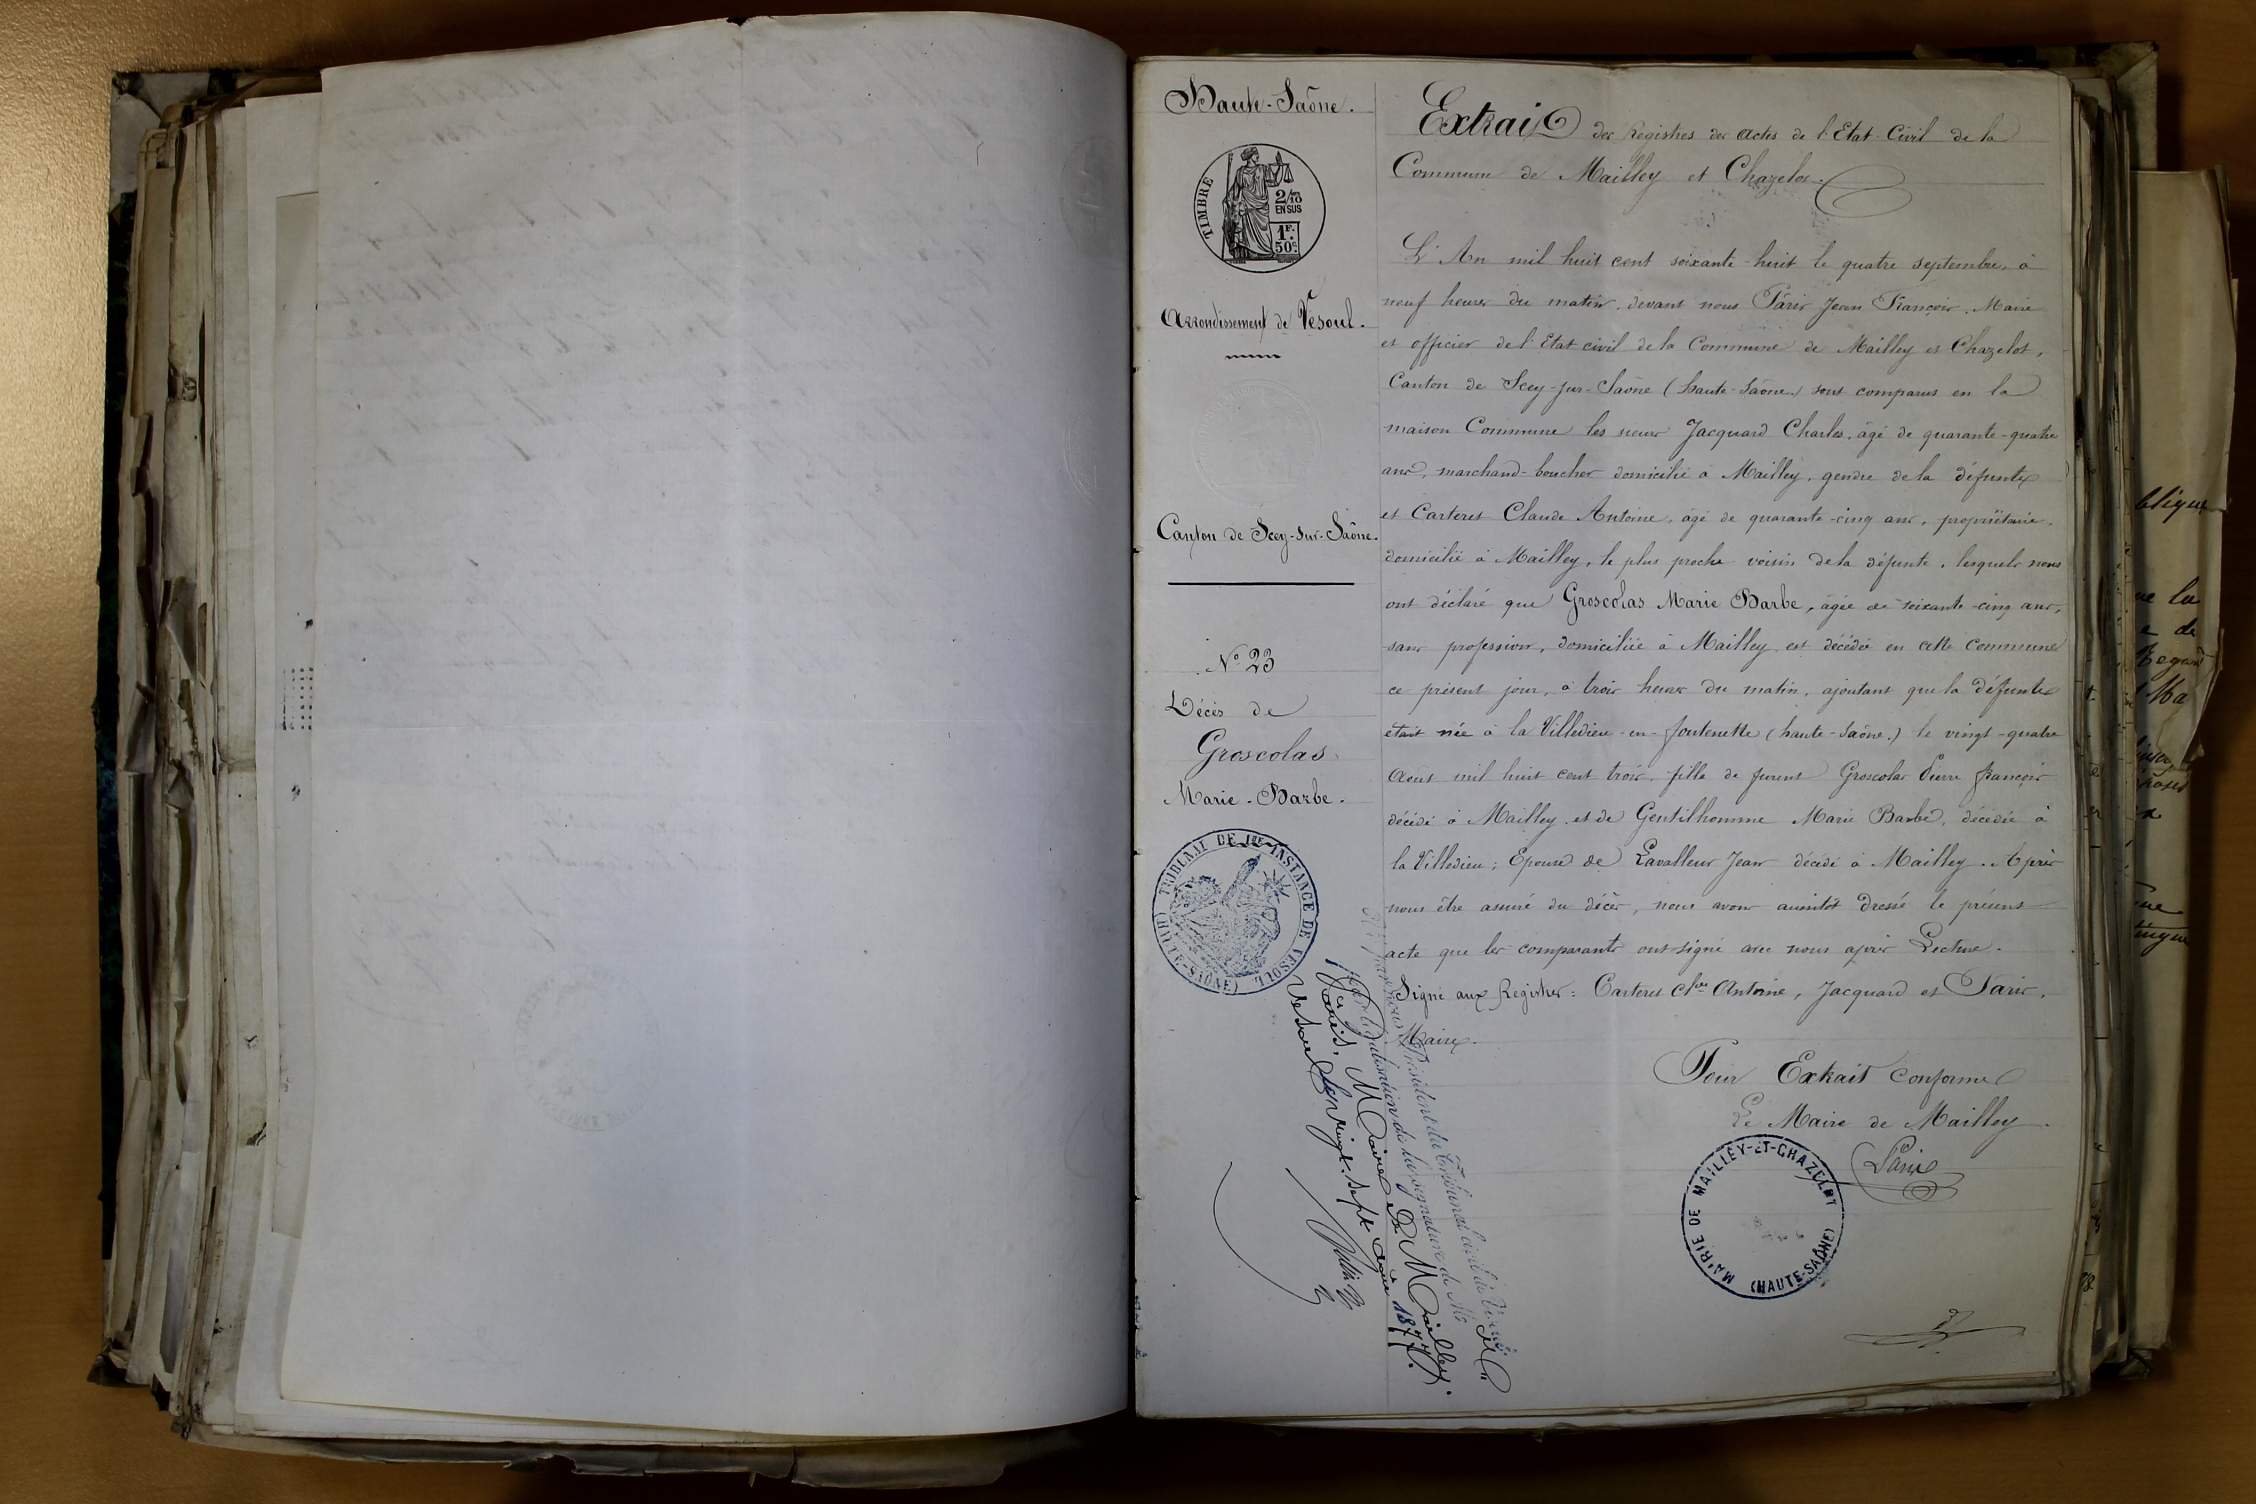 Haute-Saône.
TIMBRE
2/10
EN SUS
1F.
50c.
Arrondissement de Vesoul.
Canton de Scey-sur-Saône.
N° 23
Décès de
Groscolas
Marie-Barbe.
TRIBUNAL DE 1RE INSTANCE DE VESOUL (HTE-SAÔNE)
Extrait des Registres des actes de l'Etat-Civil de la
Commune de Mailley et Chazelot.
L'An mil huit cent soixante-huit le quatre septembre, à
neuf heures du matin, devant nous Pâris Jean François, Maire
et officier de l'Etat civil de la Commune de Mailley et Chazelot,
Canton de Scey-sur-Saône (haute-Saône) sont comparus en la
maison Commune les sieurs Jacquard Charles, âgé de quarante-quatre
ans, marchand-boucher domicilié à Mailley, gendre de la défunte
et Carteret Claude Antoine, âgé de quarante-cinq ans, propriétaire,
domicilié à Mailley, le plus proche voisin de la défunte, lesquels nous
ont déclaré que Groscolas Marie Barbe, âgée de soixante-cinq ans,
sans profession, domiciliée à Mailley est décédée en cette commune
ce présent jour, à trois heures du matin, ajoutant que la défunte
était née à la Villedieu-en-fontenette (haute-Saône.) le vingt-quatre
Août mil huit cent trois, fille de furent Groscolas Pierre françois
décédé à Mailley et de Gentilhomme Marie Barbe, décédée à
la Villedieu; Epouse de Lavalleur Jean décédé à Mailley. Après
nous être assuré du décès, nous avons aussitôt dressé le présent
acte que les comparants ont signé avec nous après Lecture.
Signé aux Registres: Carteret Cde Antoine, Jacquard et Paris,
Maire.
Pour Extrait conforme
Le Maire de Mailley.
Paris
MAIRIE DE MAILLEY-ET-CHAZELOT (HAUTE-SAÔNE)
Vu par nous Président du Tribunal civil de Vesoul
pour légalisation de la signature de Mr
Paris, Maire de Mailley.
Vesoul le vingt-sept août 1877.
bligue
ue la
e de
Ma